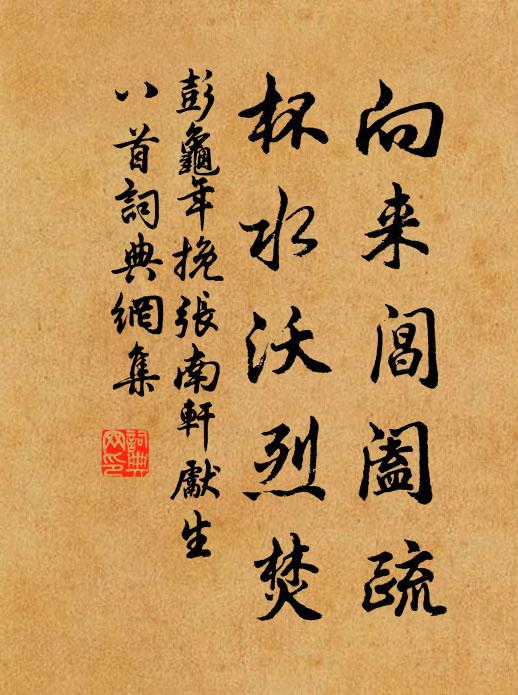 向来阊阖疏
杯水沃烈焚
彭龜年挽張南軒獻生
八首詞典網集
詞典网印